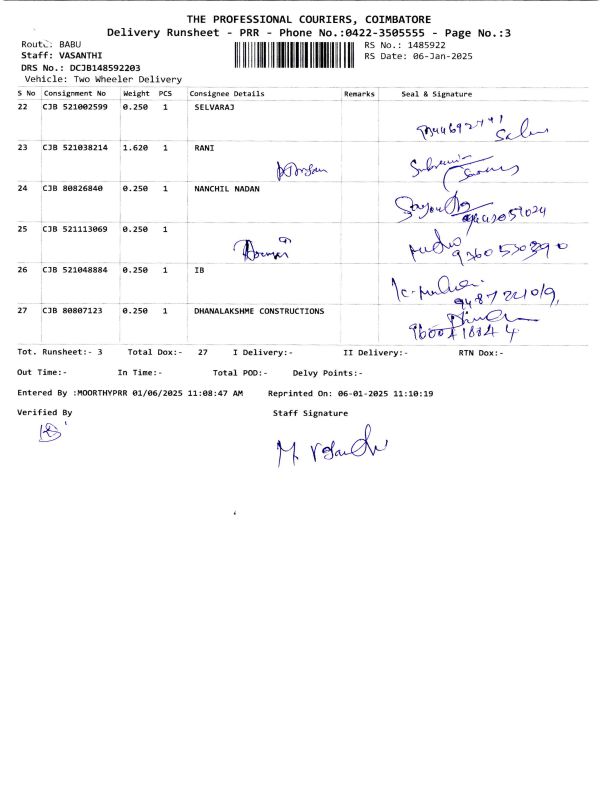 THE PROFESSIONAL COURIERS, COIMBATORE
Delivery Runsheet - PRR - Phone No.:0422-3505555 - Page No.:3
Route: BABU
RS No.: 1485922
Staff: VASANTHI
RS Date: 06-Jan-2025
DRS No.: DCJB148592203
Vehicle: Two Wheeler Delivery
S No Consignment No Weight PCS Consignee Details Remarks Seal & Signature
22 CJB 521002599 0.250 1 SELVARAJ
23 CJB 521038214 1.620 1 RANI
24 CJB 80826840 0.250 1 NANCHIL NADAN
25 CJB 521113069 0.250 1
9360530390
26 CJB 521048884 0.250 1 IB
27 CJB 80807123 0.250 1 DHANALAKSHME CONSTRUCTIONS
Tot. Runsheet:- 3 Total Dox:- 27 I Delivery:- II Delivery:- RTN Dox:-
Out Time:- In Time:- Total POD:- Delvy Points:-
Entered By :MOORTHYPRR 01/06/2025 11:08:47 AM Reprinted On: 06-01-2025 11:10:19
Verified By Staff Signature